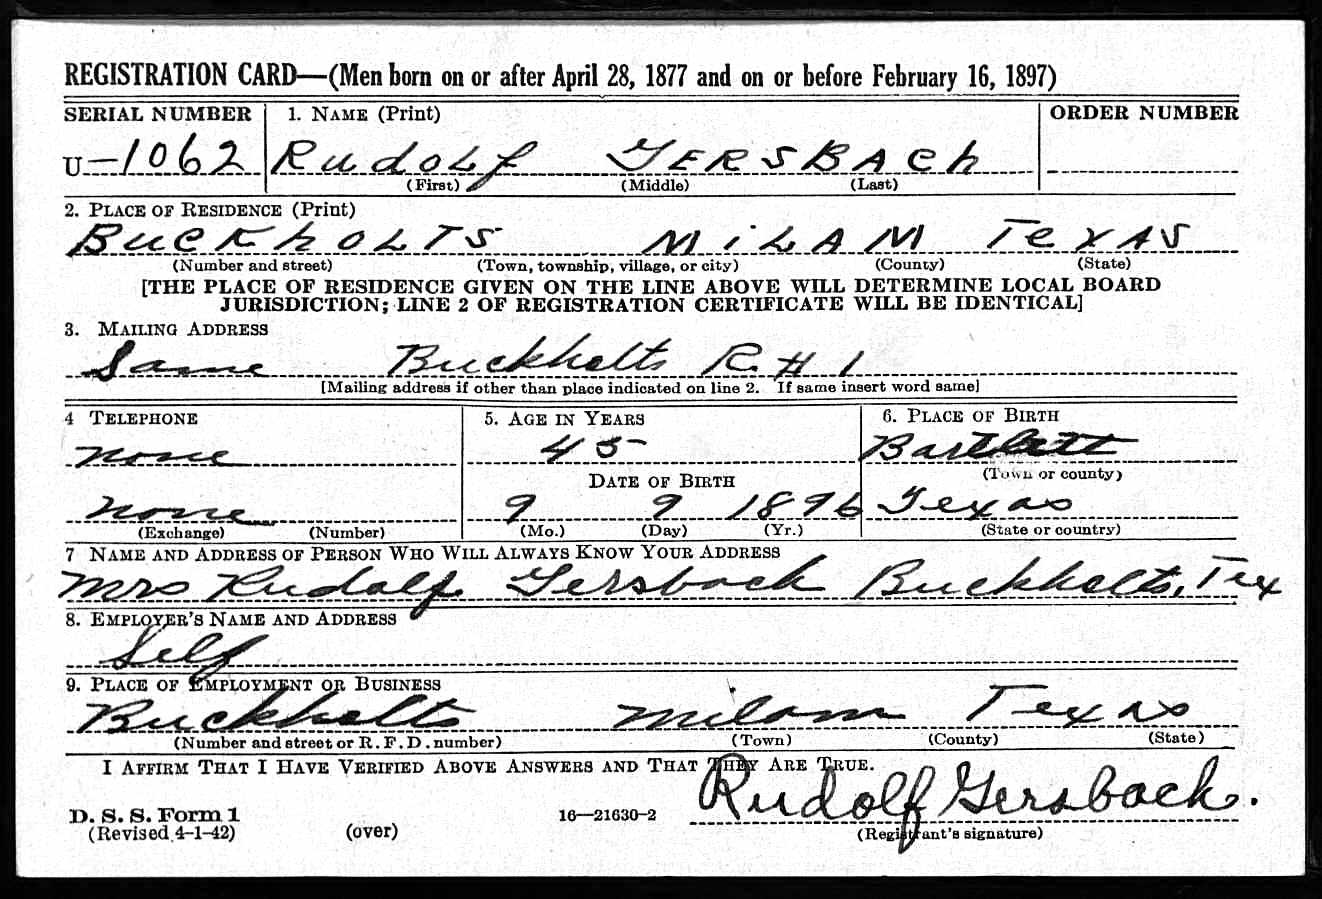 REGISTRATION CARD—(Men born on or after April 28, 1877 and on or before February 16, 1897)
SERIAL NUMBER 1. NAME (Print) ORDER NUMBER
U—1062 RudoLf GERSBACh
(First) (Middle) (Last)
2. PLACE OF RESIDENCE (Print)
BucKhOLTS MiLAM TeXAS
(Number and street) (Town, township, village, or city) (County) (State)
[THE PLACE OF RESIDENCE GIVEN ON THE LINE ABOVE WILL DETERMINE LOCAL BOARD
JURISDICTION; LINE 2 OF REGISTRATION CERTIFICATE WILL BE IDENTICAL]
3. MAILING ADDRESS
Same Buckholts R. # 1
[Mailing address if other than place indicated on line 2. If same insert word same]
4 TELEPHONE 5. AGE IN YEARS 6. PLACE OF BIRTH
none 45 Bartlett
DATE OF BIRTH (Town or county)
none 9 9 1896 Texas
(Exchange) (Number) (Mo.) (Day) (Yr.) (State or country)
7 NAME AND ADDRESS OF PERSON WHO WILL ALWAYS KNOW YOUR ADDRESS
Mrs Rudolf Gersbach Buckholts, Tex
8. EMPLOYER'S NAME AND ADDRESS
Self
9. PLACE OF EMPLOYMENT OR BUSINESS
Buckholts Milam Texas
(Number and street or R. F. D. number) (Town) (County) (State)
I AFFIRM THAT I HAVE VERIFIED ABOVE ANSWERS AND THAT THEY ARE TRUE.
Rudolf Gersbach.
D. S. S. Form 1 16—21630-2
(Revised 4-1-42) (over) (Registrant's signature)